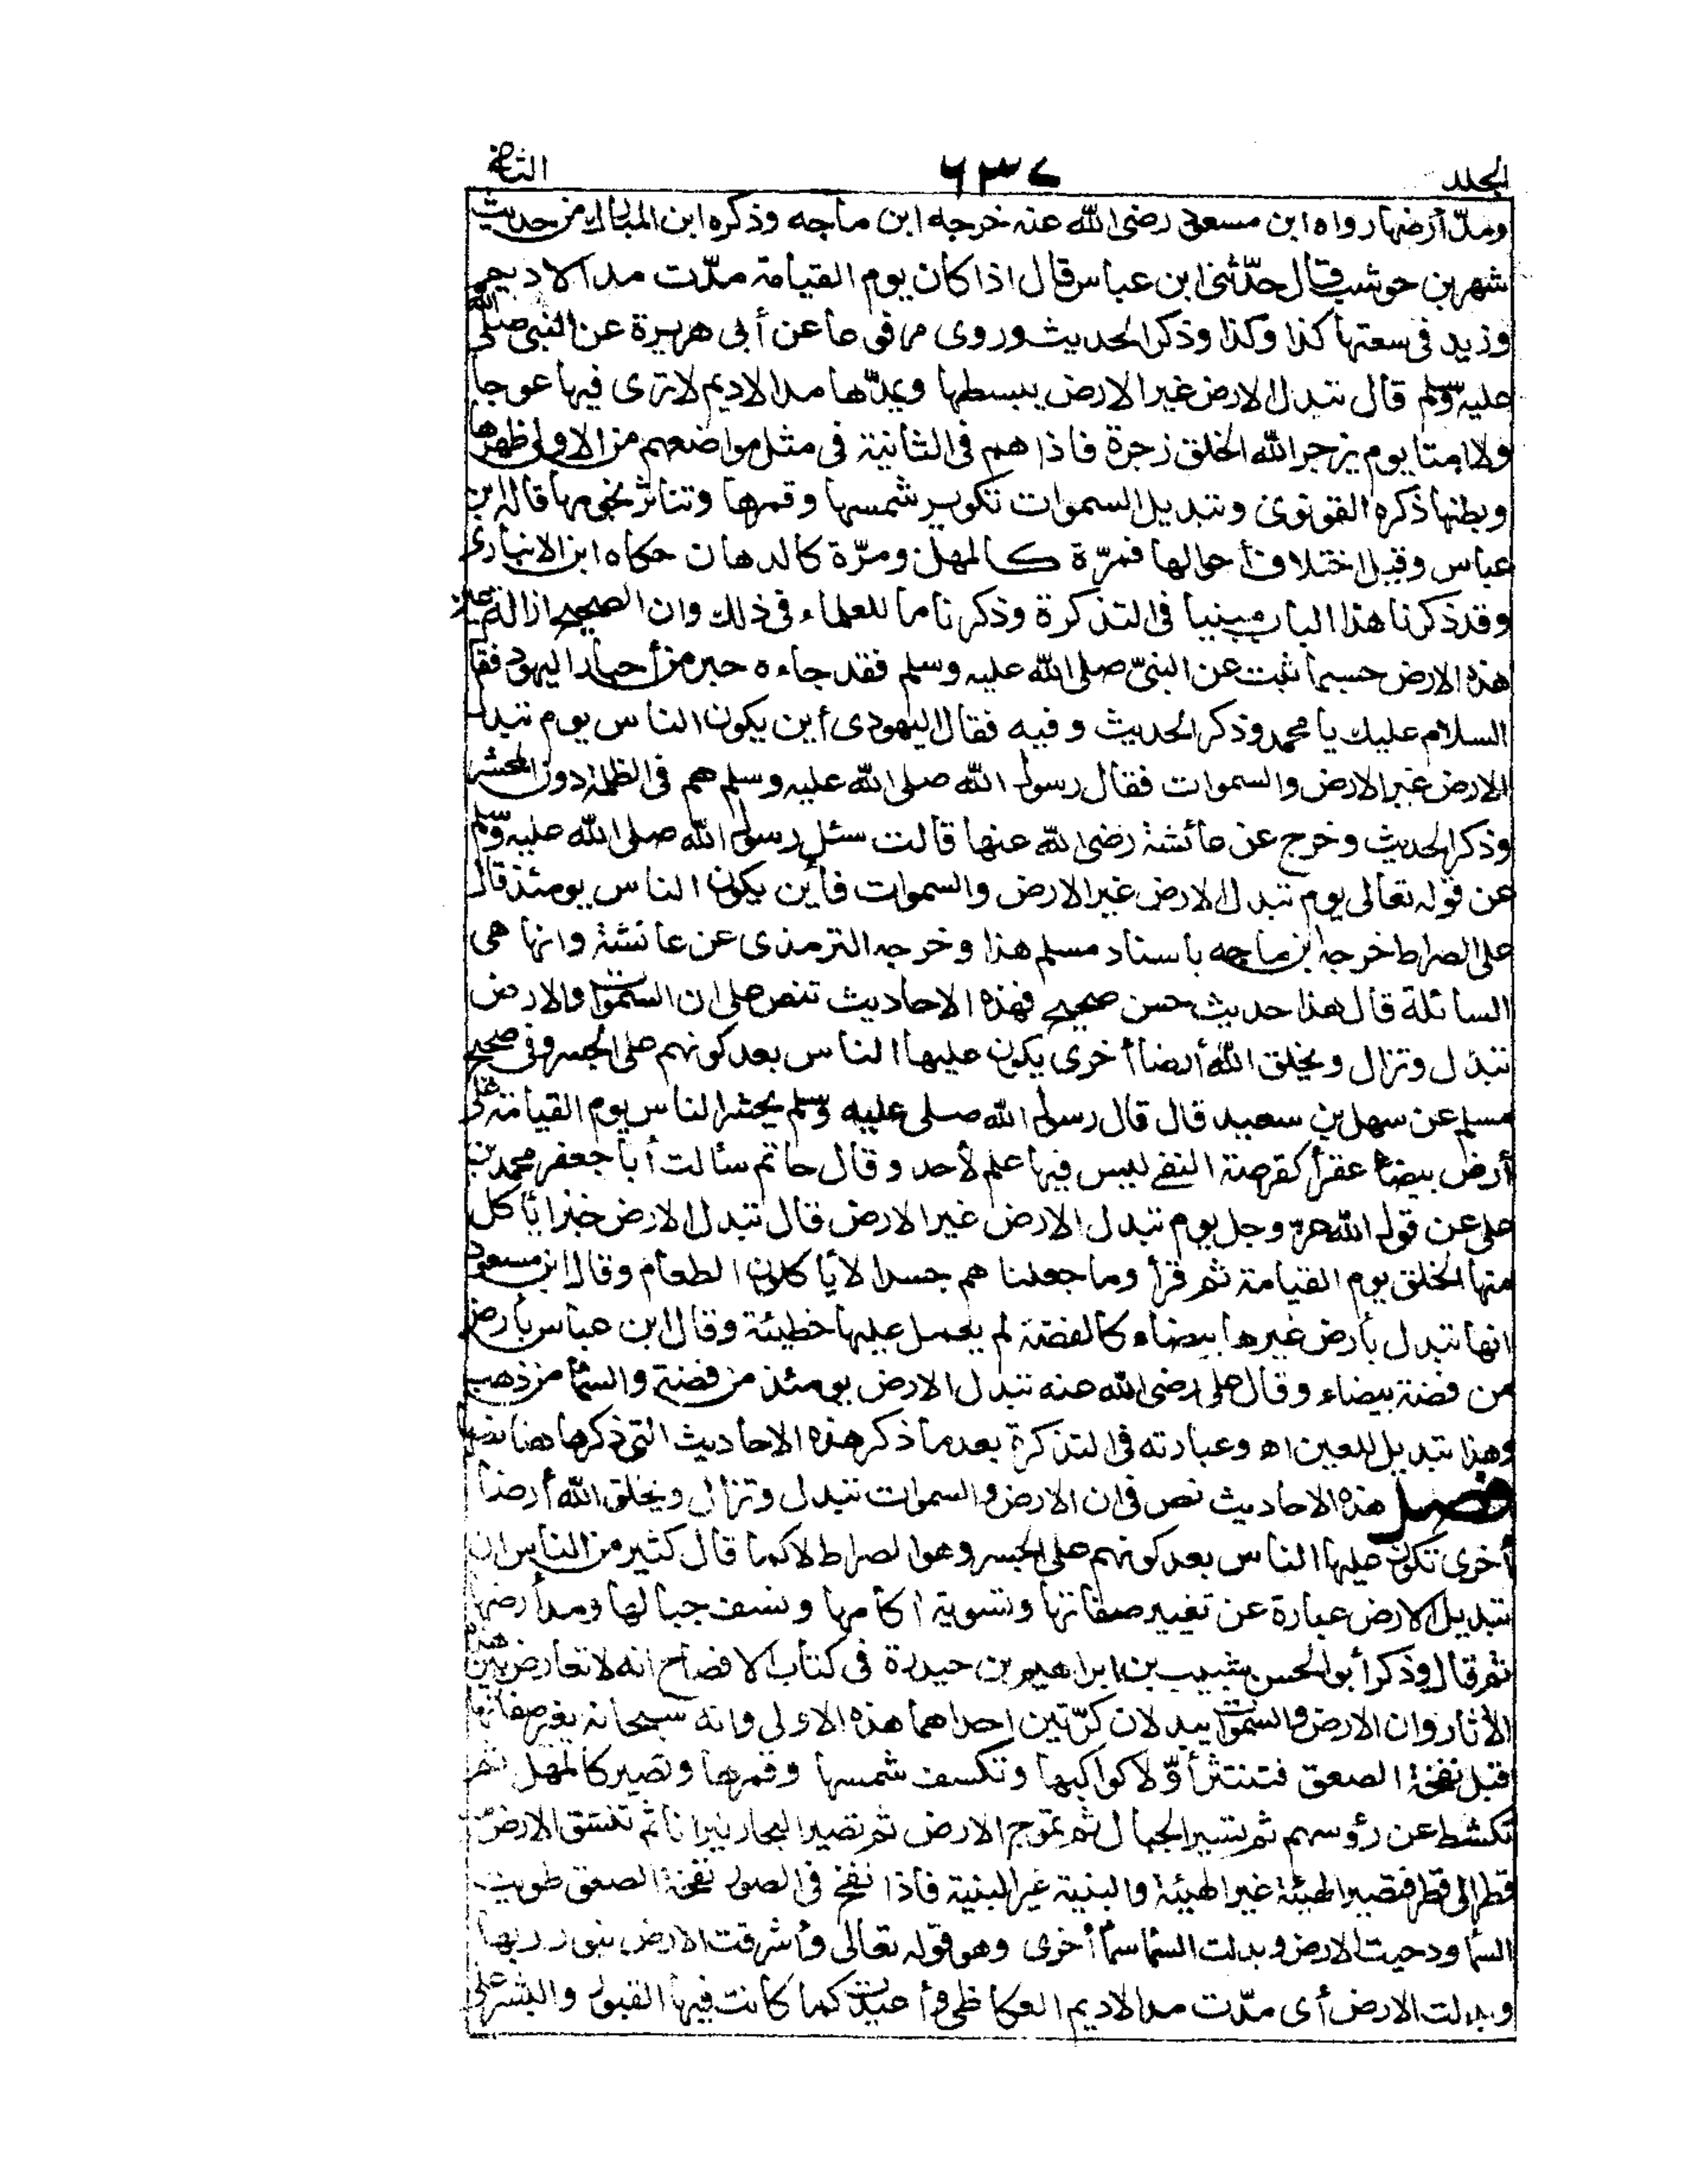 المجلد ٦٣٧ الثانى
ومدّ أرضها رواه ابن مسعود رضى الله عنه خرجه ابن ماجه وذكره ابن المبارك من حديث
شهر بن حوشب قال حدّثنى ابن عباس قال اذا كان يوم القيامة مدّت مد الاديم
وزيد فى سعتها كذا وكذا وذكر الحديث وروى مرفوعا عن أبى هريرة عن النبى صلى الله
عليه وسلم قال تبدل الارض غير الارض يبسطها ويمدّها مد الاديم لا ترى فيها عوجا
ولا امتا يوم يزجر الله الخلق زجرة فاذا هم فى الثانية فى مثل مواضعهم من الاولى ظهرها
وبطنها ذكره القونوى وتبديل السموات تكوير شمسها وقمرها وتناثر نجومها قاله ابن
عباس وقيل اختلاف أحوالها فمرّة كالمهل ومرّة كالدهان حكاه ابن الانبارى
وقد ذكرنا هذا الباب مبينا فى التذكرة وذكرنا ما للعلماء فى ذلك وان الصحيح ازالة عين
هذه الارض حسبما ثبت عن النبىّ صلى الله عليه وسلم فقد جاءه حبر من أحبار اليهود فقا
السلام عليك يا محمد وذكر الحديث وفيه فقال اليهودى أين يكون الناس يوم تبدل
الارض غير الارض والسموات فقال رسول الله صلى الله عليه وسلم هم فى الظلمة دون المحشر
وذكر الحديث وخرج عن عائشة رضى الله عنها قالت سئل رسول الله صلى الله عليه وسلم
عن قوله تعالى يوم تبدل الارض غير الارض والسموات فأين يكون الناس يومئذ قال
على الصراط خرجه ابن ماجه بأسناد مسلم هذا وخرجه الترمذى عن عائشة وانها هى
السائلة قال هذا حديث حسن صحيح فهذه الاحاديث تنص على ان السموات والارض
تبدل وتزال ويخلق الله أرضا أخرى يكون عليها الناس بعد كونهم على الجسر وفى صحيح
مسلم عن سهل بن سعيد قال قال رسول الله صلى عليه وسلم يحشر الناس يوم القيامة على
أرض بيضا عفرأ كقرصة النقى ليس فيها علم لأحد وقال حاتم سئالت أبا جعفر محمد بن
على عن قول الله عز وجل يوم تبدل الارض غير الارض قال تبدل الارض خبزا يأكل
منها الخلق يوم القيامة ثم قرأ وما جعلنا هم جسدا لا يأكلون الطعام وقال ابن مسعود
انها تبدل بأرض غيرها بيضاء كالفضة لم يعمل عليها خطيئة وقال ابن عباس بأرض
من فضة بيضاء وقال على رضى الله عنه تبدل الارض يومئذ من فضة والسمأ من ذهب
وهذا تبديل للعين اه وعبارته فى التذكرة بعد ما ذكر هذه الاحاديث التى ذكرها هنا نصها
فصل هذه الاحاديث نص فى ان الارض والسموات تبدل وتزال ويخلق الله أرضا
أخرى تكون عليها الناس بعد كونهم على الجسر وهو الصراط لا كما قال كثير من الناس ان
تبديل الارض عبارة عن تغيير صفاتها وتسوية اكامها ونسف جبالها ومد أرضها
ثم قال وذكر أبو الحسن شبيب بن ابراهيم بن حيدرة فى كتاب الافصاح انه لا تعارض بين هذه
الأثار وان الارض والسموات يبدلان كرّتين احداهما هذه الاولى وانه سبحانه يغير صفاتها
قبل نفخة الصعق فتنتثر أوّلا كواكبها وتكسف شمسها وقمرها وتصير كالمهل ثم
تكشط عن رؤسهم ثم تسير الجبال ثم تموج الارض ثم تصير البحار نيرانا ثم تنشق الارض من
قطر الى قطر فتصير الهيئة غير الهيئة والبنية غير البنية فاذا نفخ فى الصور نفخة الصعق طويت
السمأ ودحيت الارض وبدلت السمأ سمأ أخرى وهو قوله تعالى وأشرقت الارض بنور ربها
وبدلت الارض أى مدّت مد الاديم العكاظى وأعيدت كما كانت فيها القبور والبشر على